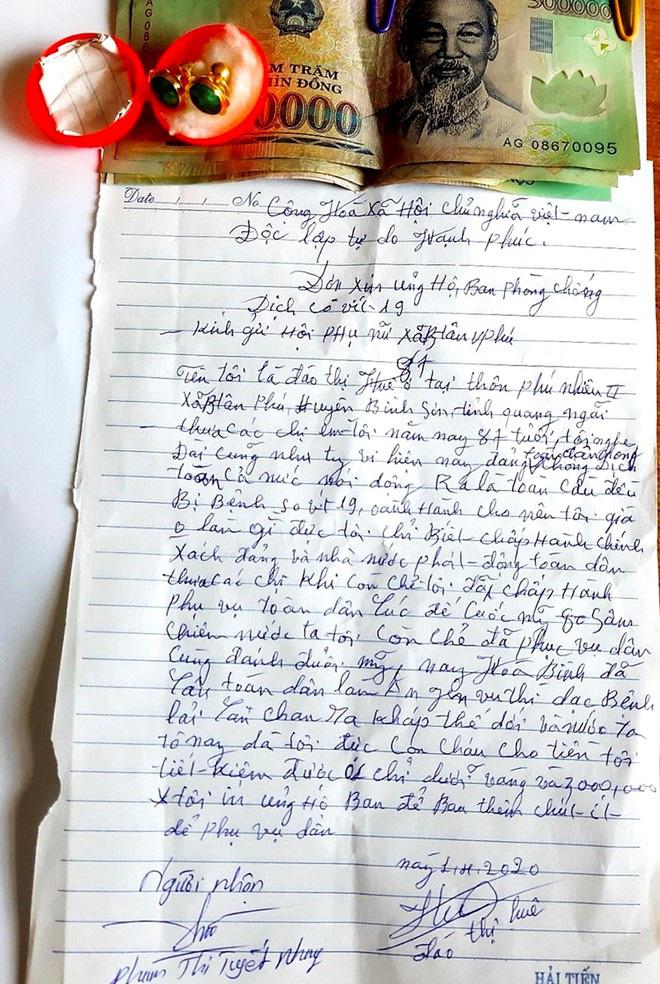 500000
AG 086
ĂM TRĂM
GHÌN ĐỒNG
0000
AG 08670095
Date ..../..../.... No
Cộng Hoà Xã Hội chủ nghĩa việt-nam
Độc lập tự do Hạnh phúc.
Đơn xin ủng Hộ, Ban phòng chống
Dịch cô vit-19
- Kính gửi Hội phụ nữ xã Bình tân phú
Tên tôi là đào thị Huê ở tại thôn phú nhiêu II
xã Btân Phú, Huyện Bình Sơn, tỉnh quảng ngãi
- thưa các chị em tôi năm nay 87 tuổi, tôi nghe
Đài cũng như ty vi hiện nay đảng toàn dân phòng chống Dịch
toàn cả nước nói đồng Ra là toàn cầu đều
Bị Bệnh so vit 19, oành Hành cho nên tôi già
o làm gì đức tôi chỉ Biết chấp Hành chính
xách đảng và nhà nước phát-động toàn dân
thưa các chị Khi còn chẻ tôi đã chấp Hành
phụ vụ toàn dân lúc đế cuốc mỹ qo sâm
chiếm nước ta tôi còn chẻ đã phục vụ dân
Cùng đánh đuổi mỹ, nay Hoà Bình đã
lâu toàn dân làm ăn yên vui thì dạc Bệnh
lài lan chan ra khắp thế dới và nước ta
tô nay đã tôi đức con cháu cho tiền tôi
tiết-kiệm được 01 chỉ dưỡi vàng và 3000,000
tôi in ủng Hộ Ban để Ban thêm chút-ít-
để phụ vụ dân
nay 1.4.2020
Người nhận
Huê
Đào thị Huê
phạm Thị Tuyết Nhung
HẢI TIẾN